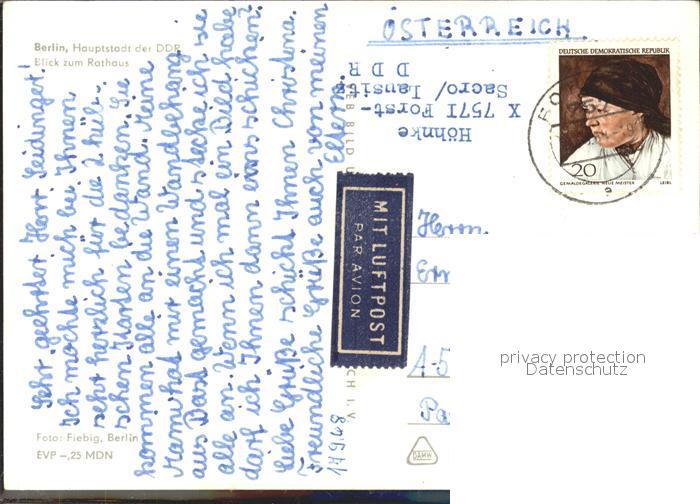 Berlin, Hauptstadt der DDR
Blick zum Rathaus
Sehr geehrter Herr Seidinger!
Ich möchte mich bei Ihnen
sehr herzlich für die 2 hüb-
schen Karten bedanken. Sie
kommen alle an die Wand. Meine
Mama hat mir einen Wandbehang
aus Bast gemacht und stecke ich sie
alle an. Wenn ich mal ein Bild habe
darf ich Ihnen dann eins schicken?
Liebe Grüße schickt Ihnen Christina.
Freundliche Grüße auch von meinen
Eltern.
Foto: Fiebig, Berlin
EVP –,25 MDN
VEB BILD U
CH I. V.
1968
ÖSTERREICH.
Höhnke
X 7571 Forst-
Sacro/Lausitz
D D R
DEUTSCHE DEMOKRATISCHE REPUBLIK
20
GEMÄLDEGALERIE NEUE MEISTER LEIBL
MIT LUFTPOST
PAR AVION
Herrn
A-5
DAMW
privacy protection
Datenschutz